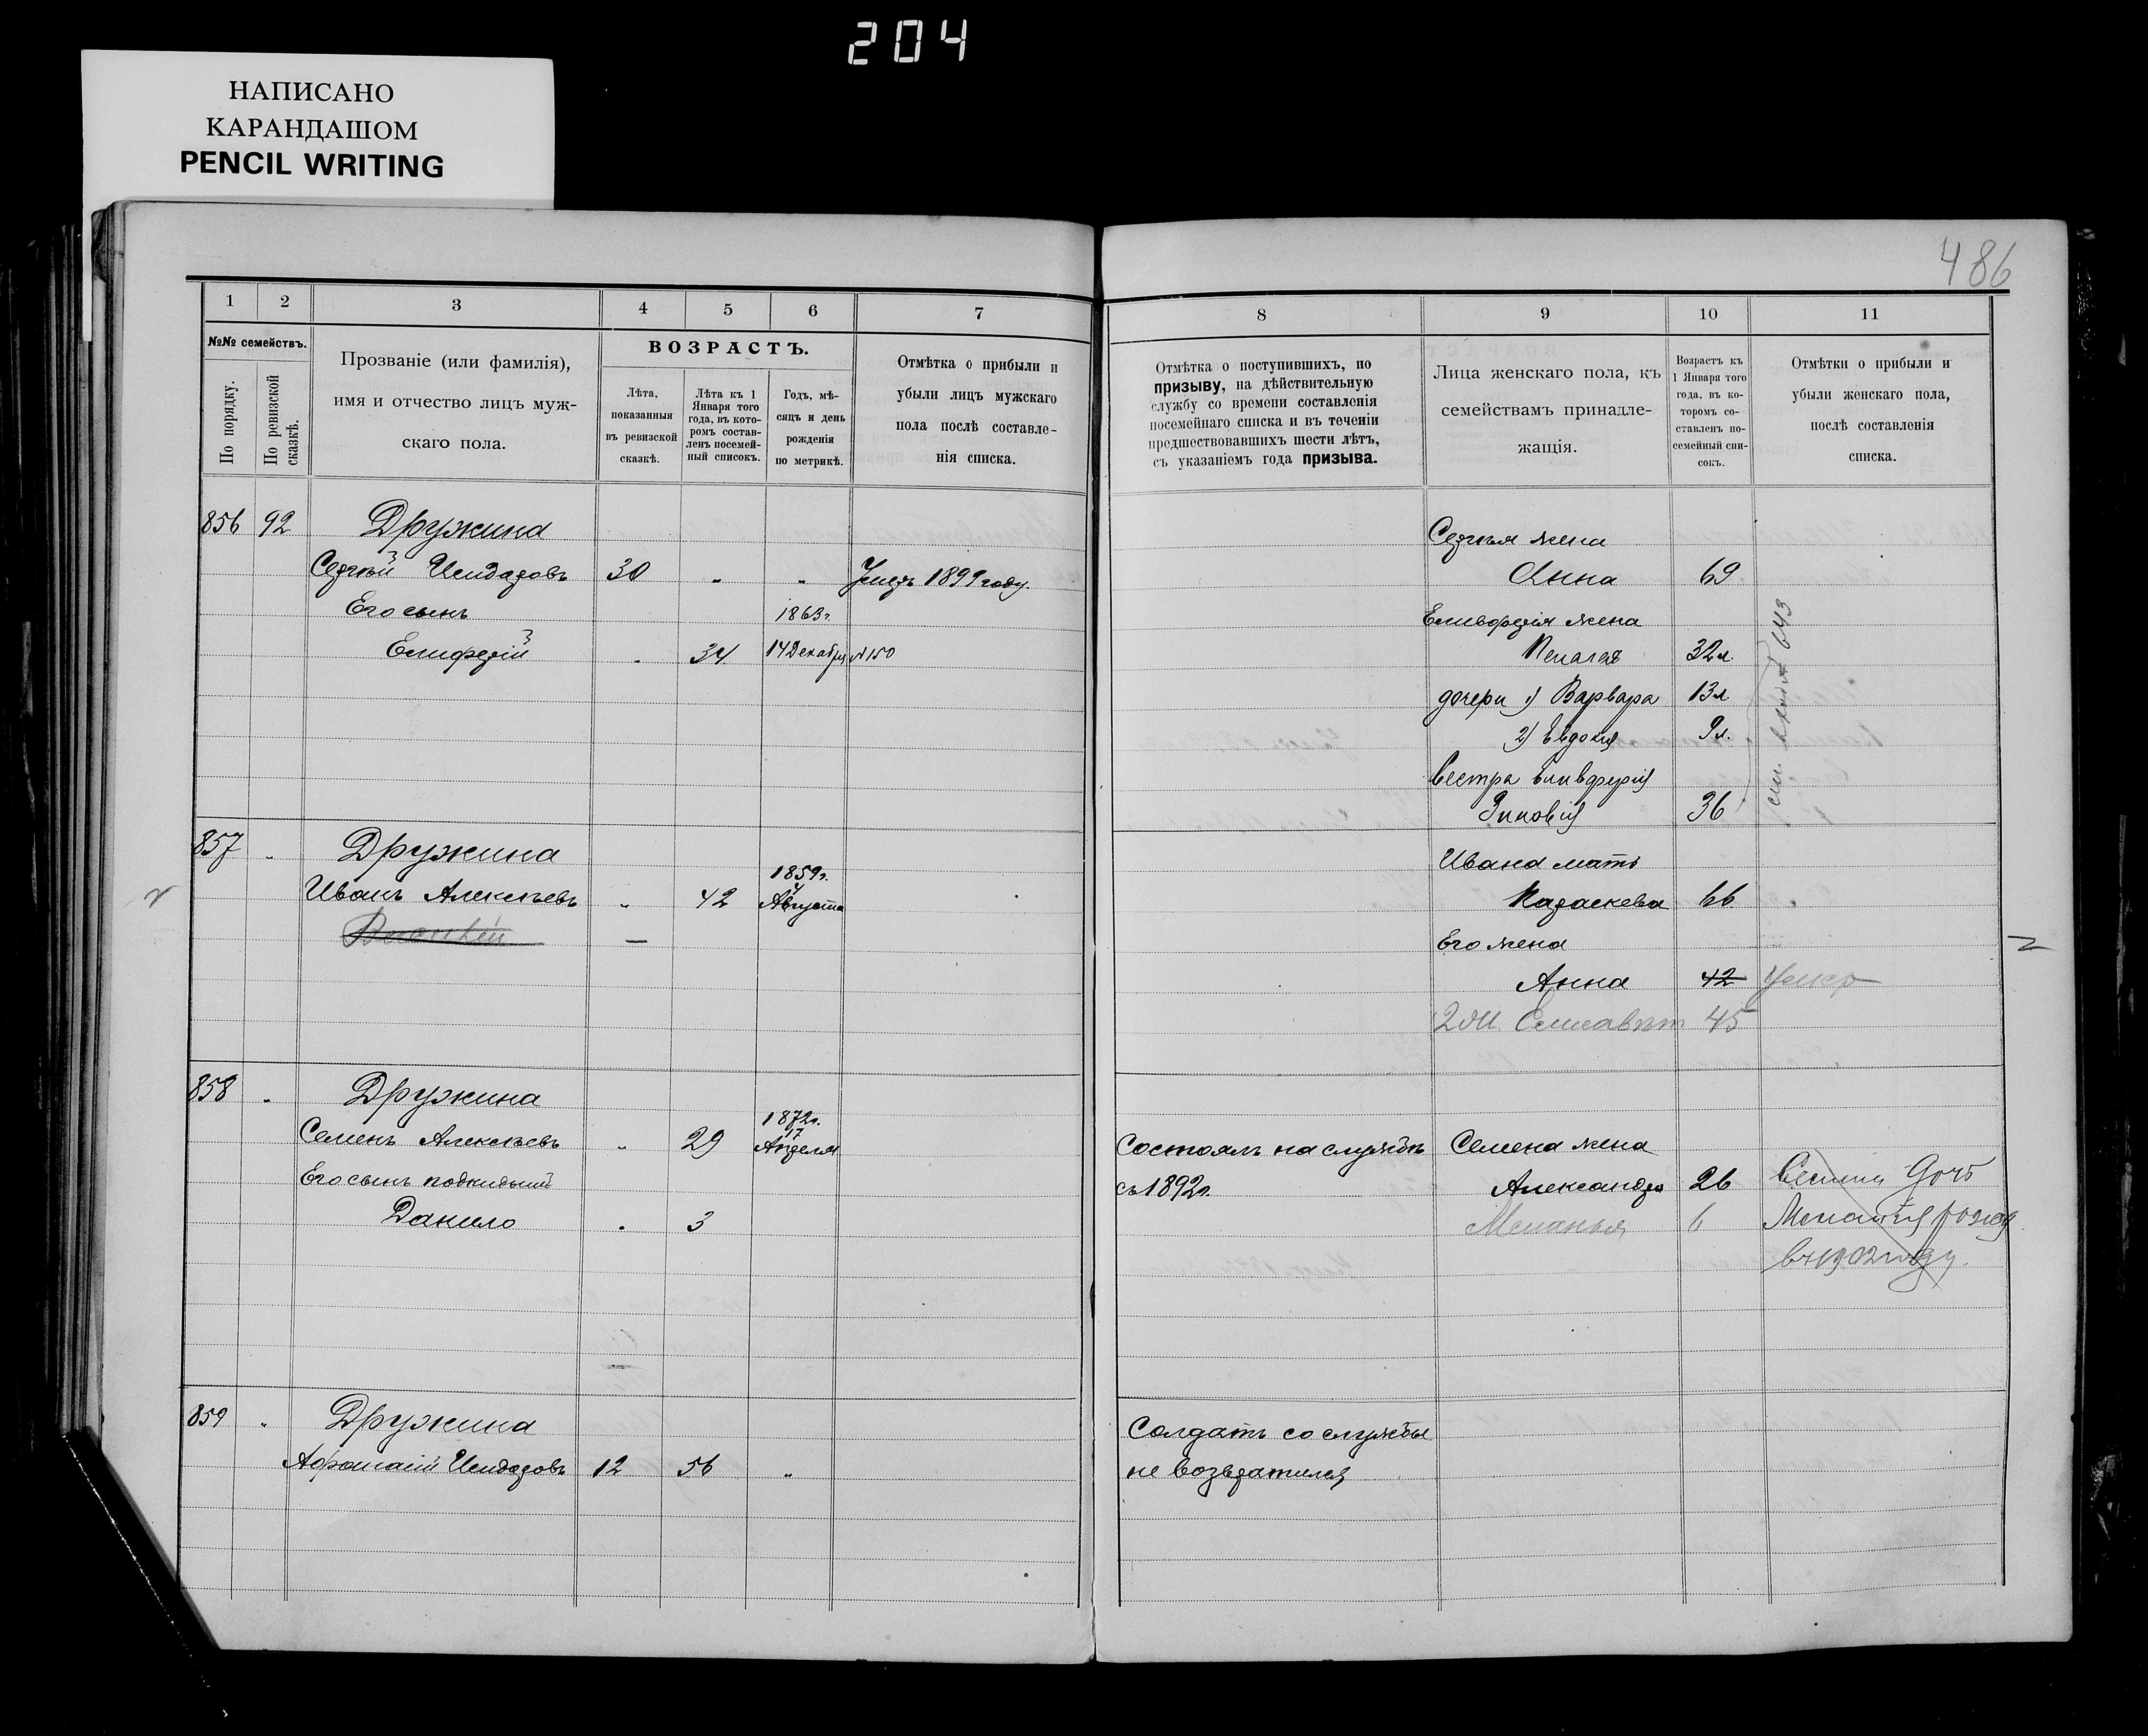 204
НАПИСАНО
КАРАНДАШОМ
PENCIL WRITING
486
1 2 3 4 5 6 7
№№ семействъ.
По порядку.
По ревизской сказкѣ.
Прозваніе (или фамилія),
имя и отчество лицъ муж-
скаго пола.
ВОЗРАСТЪ.
Лѣта,
показанныя
въ ревизской
сказкѣ.
Лѣта къ 1
Января того
года, въ кото-
ромъ состав-
ленъ посемей-
ный списокъ.
Годъ, мѣ-
сяцъ и день
рожденія
по метрикѣ.
Отмѣтка о прибыли и
убыли лицъ мужскаго
пола послѣ составле-
нія списка.
8 9 10 11
Отмѣтка о поступившихъ, по
призыву, на дѣйствительную
службу со времени составленія
посемейнаго списка и въ теченіи
предшествовавшихъ шести лѣтъ,
съ указаніемъ года призыва.
Лица женскаго пола, къ
семействамъ принадле-
жащія.
Возрастъ къ
1 Января того
года, въ ко-
торомъ со-
ставленъ по-
семейный спи-
сокъ.
Отмѣтки о прибыли и
убыли женскаго пола,
послѣ составленія
списка.
856 92 Дружина
Сергѣй Исидоровъ 30 " " Умеръ 1899 году.
Его сынъ 1863г.
Елиферій " 34 14 Декабря №150
Сергѣя жена
Анна 69
Елиферія жена
Пелагея 32л.
дочери 1) Варвара 13л
2) Евдокія 9л.
Сестра Елифферія
Зиновія 36
857 " Дружина
1859г.
Иванъ Алексѣевъ " 42 Августа
Ивана мать
Параскева 66 "
Его жена
Анна 42 Умер
2ая Елисавет 45
858 " Дружина
1872г.
17
Семенъ Алексѣевъ " 29 Апреля
Его сынъ подкидышъ
Данило " 3
Состоялъ на службѣ
съ 1892г.
Семена жена
Александра 26
Меланья 6
Дочь
Мелания рожд
въ 1902 году.
859 " Дружина
Афанасій Исидоровъ 12 56 "
Солдатъ со службы
не возвратился